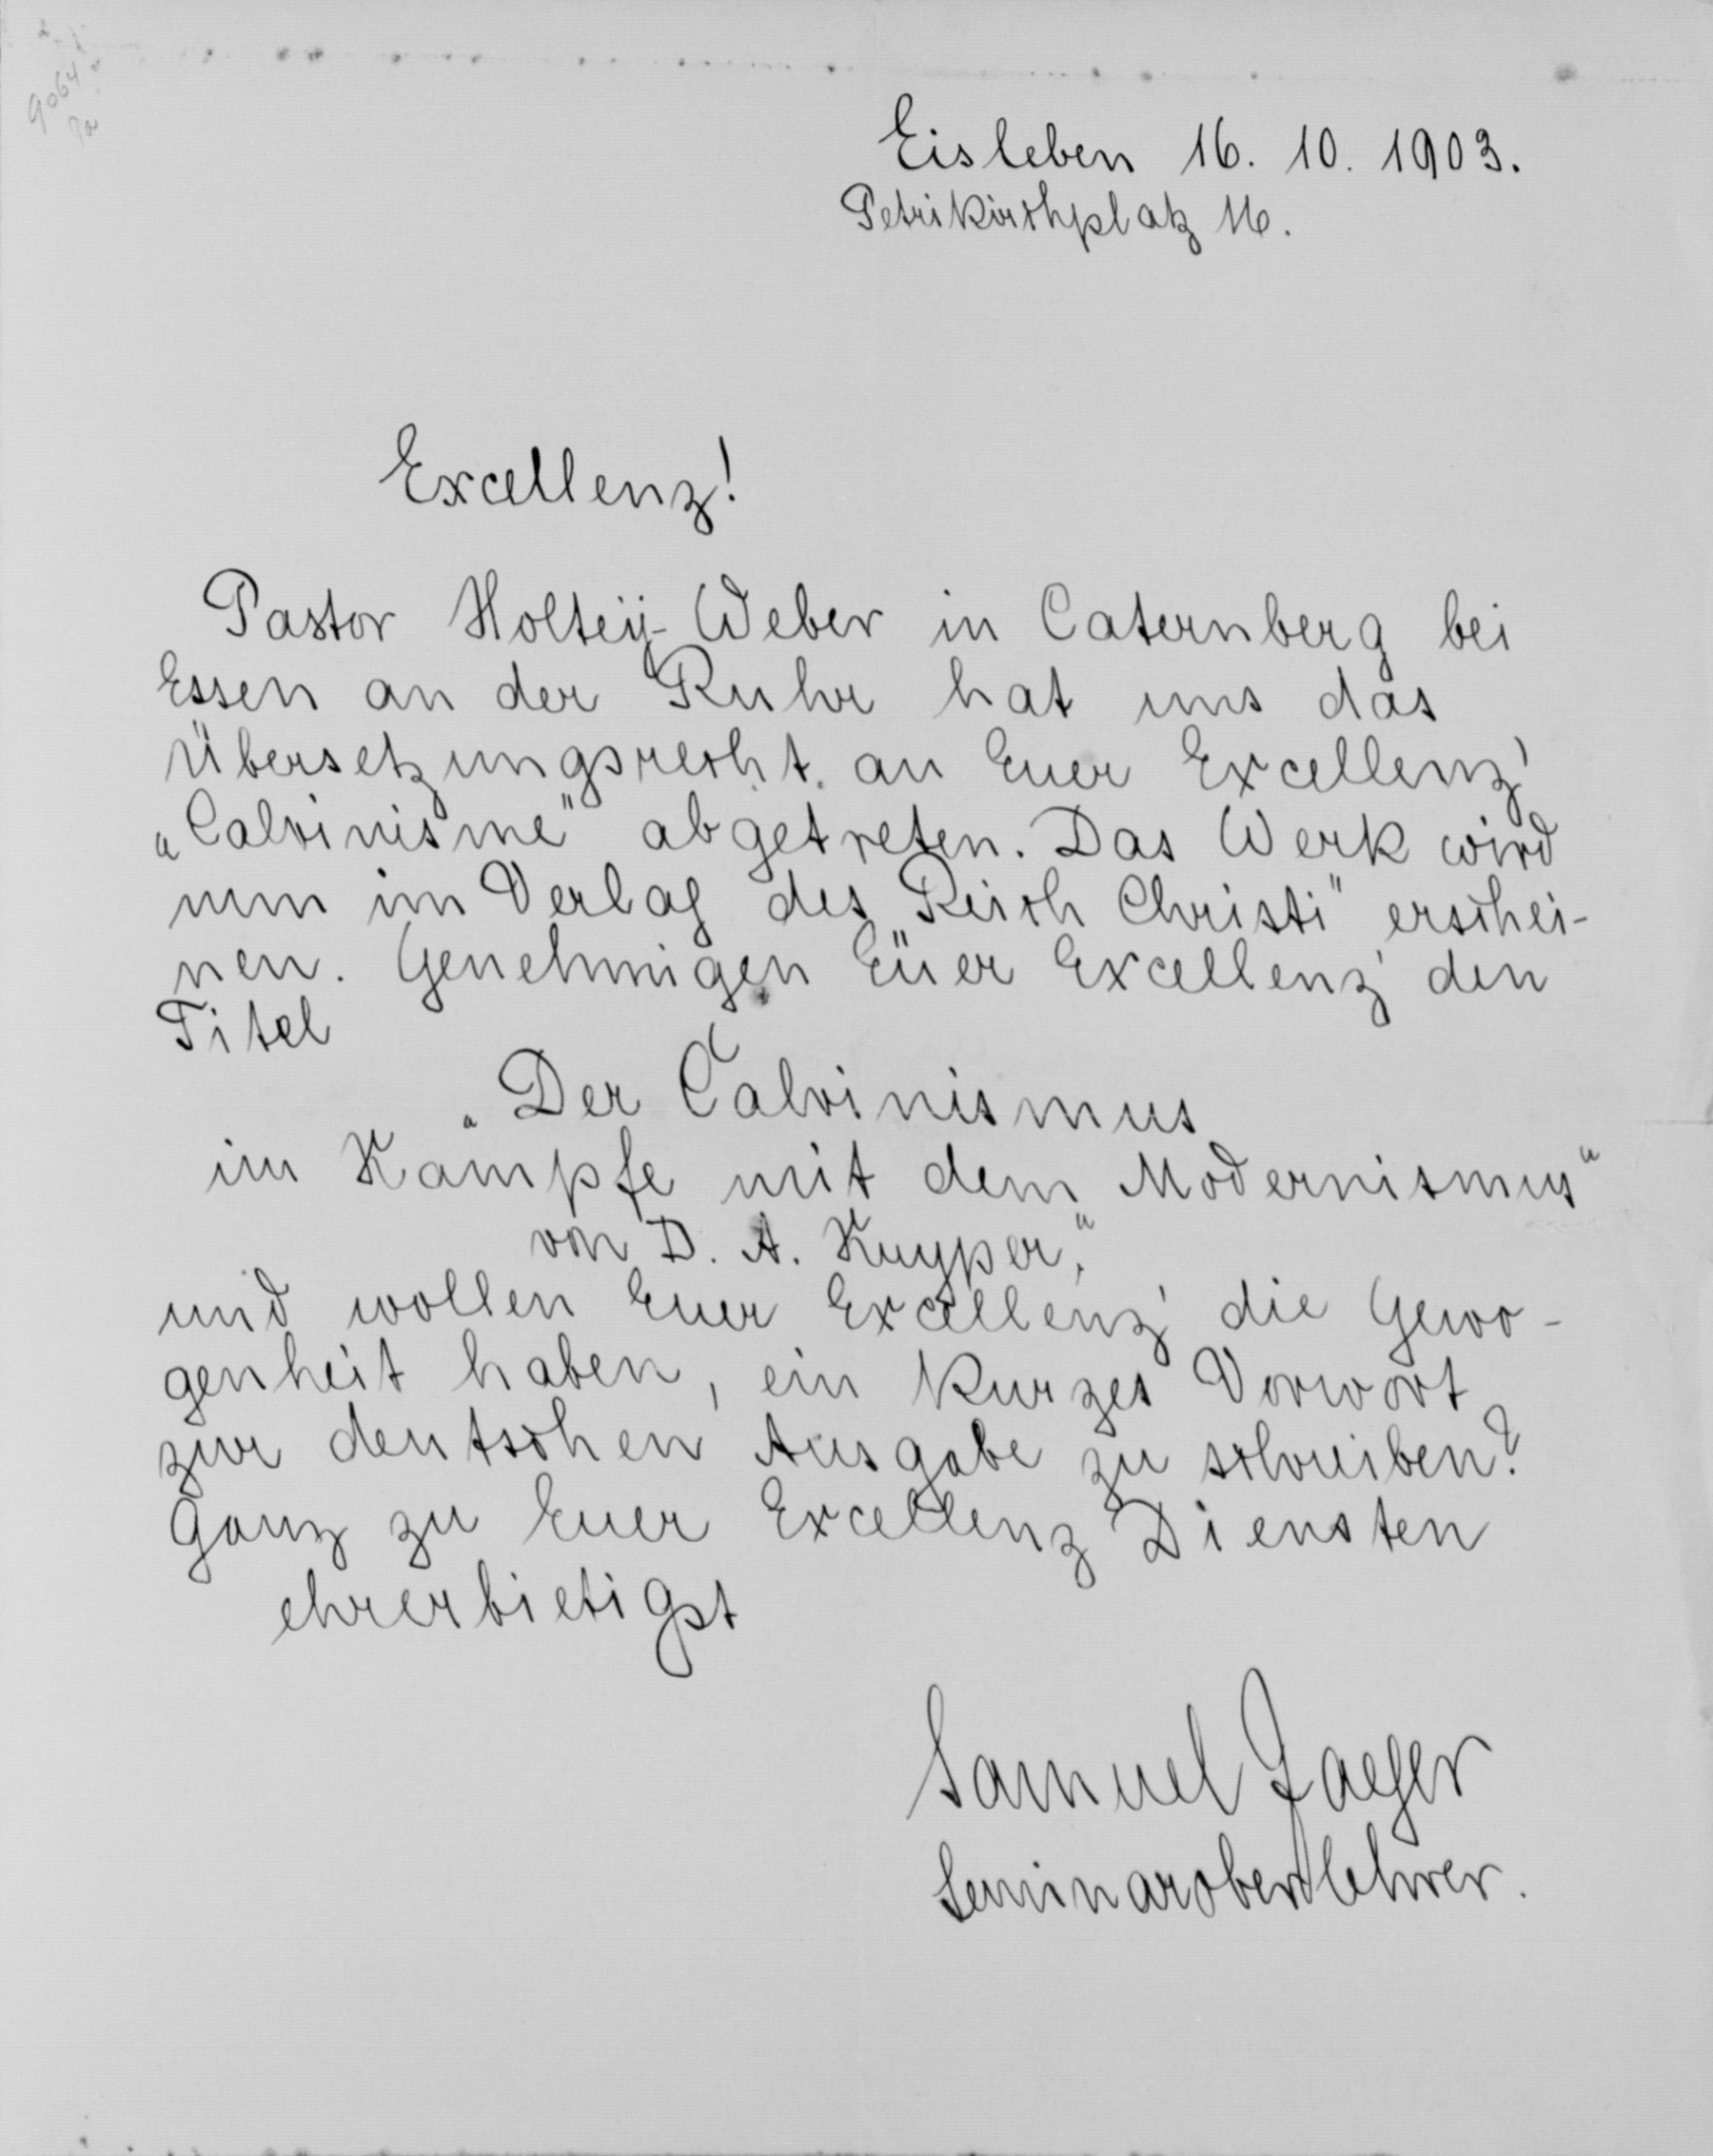 9064
Eisleben 16. 10. 1903.
Petrikirchplatz 16.
Excellenz!
Pastor Holteÿ-Weber in Caternberg bei
Essen an der Ruhr hat uns das
Übersetzungsrecht an Euer Excellenz'
„Calvinisme" abgetreten. Das Werk wird
nun im Verlag des „Reich Christi" erschei-
nen. Genehmigen Euer Excellenz' den
Titel
„Der Calvinismus
im Kampfe mit dem Modernismus“
von D. A. Kuyper,“
und wollen Euer Excellenz' die Gewo-
genheit haben, ein kurzes Vorwort
zur deutschen Ausgabe zu schreiben?
Ganz zu Euer Excellenz Diensten
ehrerbietigst
Samuel Jaeger
Seminaroberlehrer.